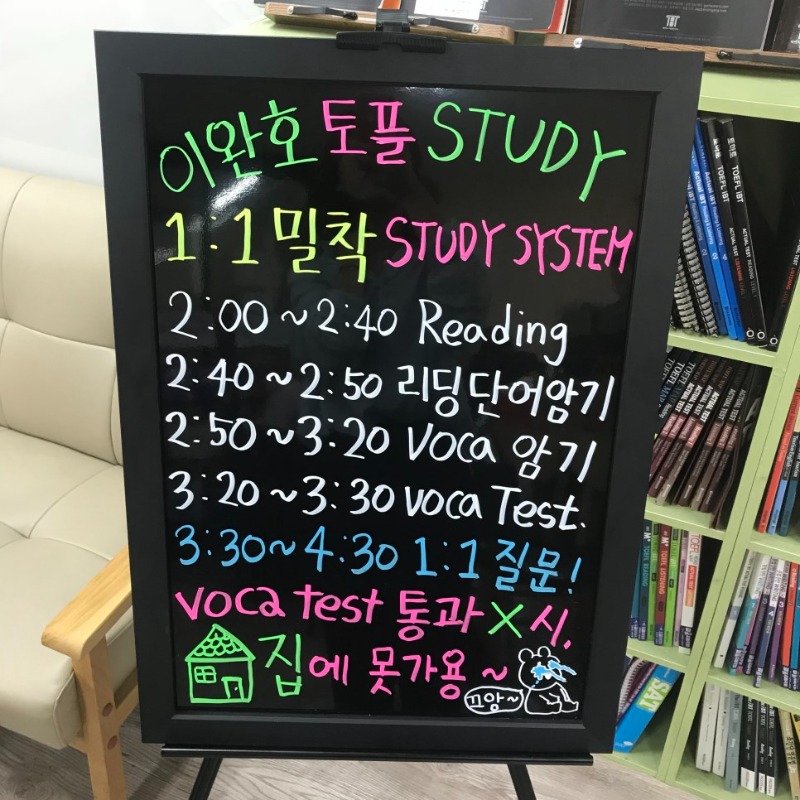 이완호 토플 STUDY
1:1 밀착 STUDY SYSTEM
2:00~2:40 Reading
2:40~2:50 리딩단어암기
2:50~3:20 VOCA 암기
3:20~3:30 VOCA Test.
3:30~4:30 1:1 질문!
voca test 통과 X 시,
집에 못가용~
끄앙~
TOEFL iBT
TOEFL iBT
SAT